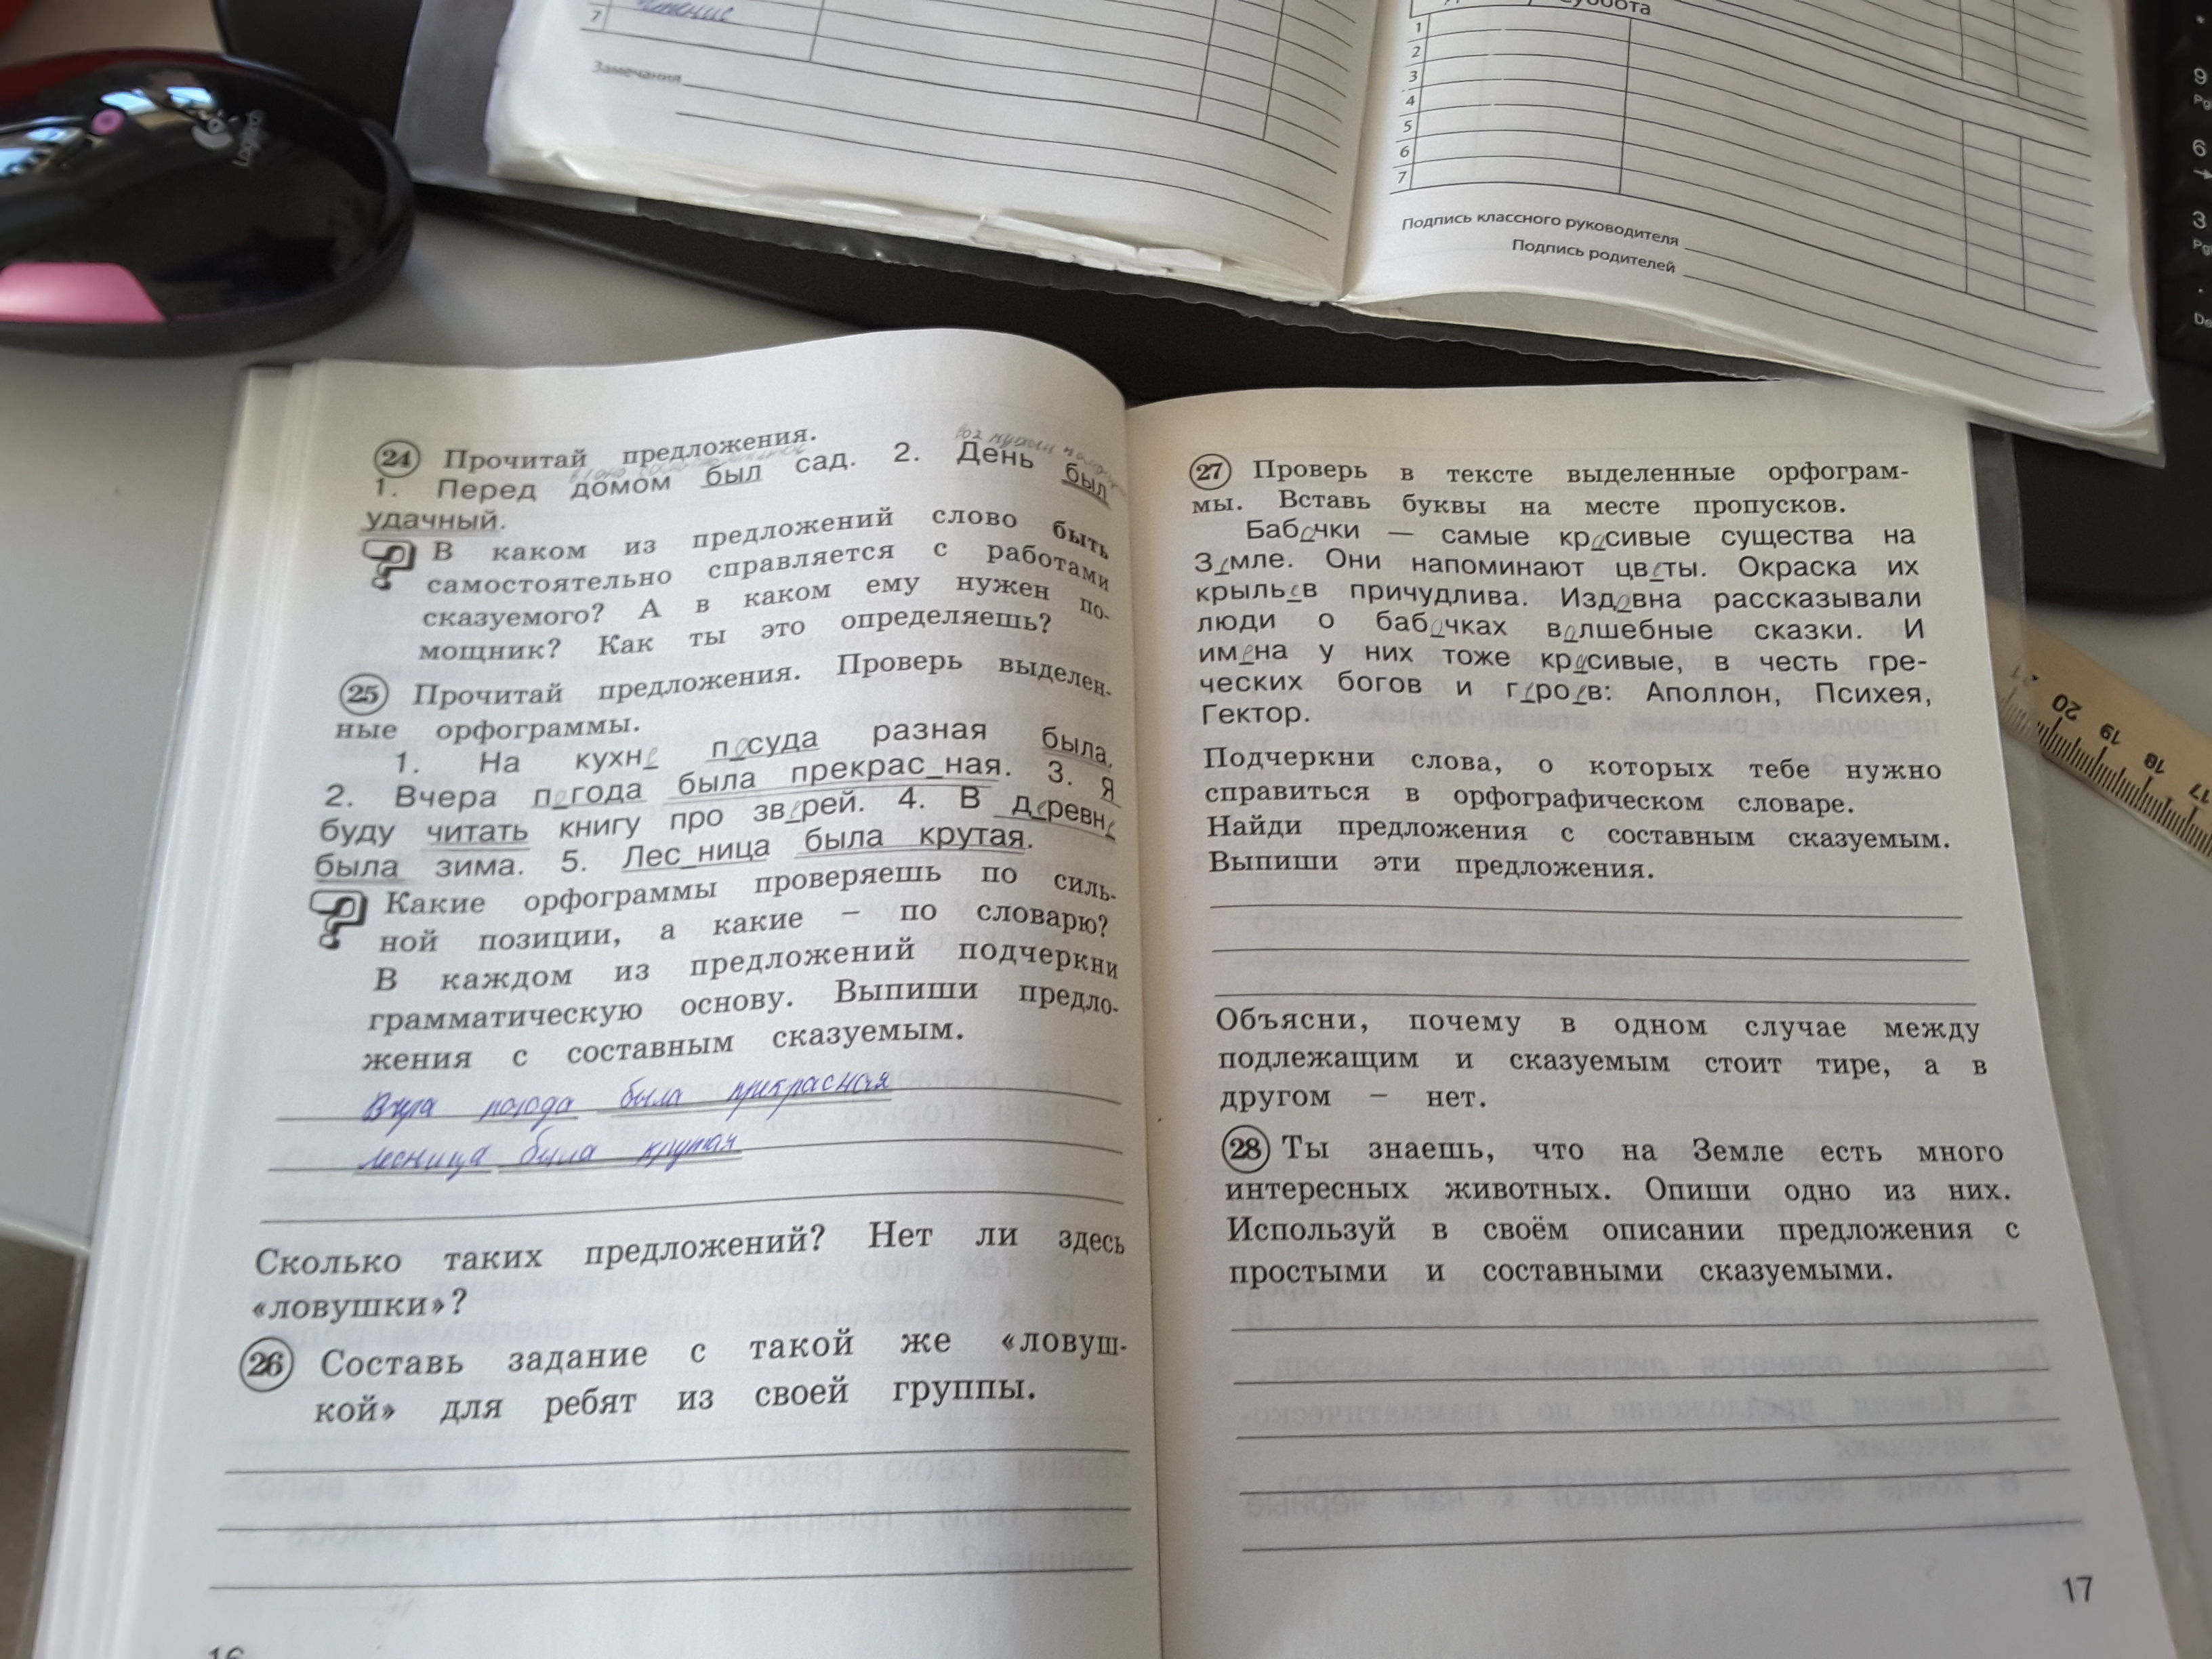 7 чтение
Замечания
Суббота
1
2
3
4
5
6
7
Подпись классного руководителя
Подпись родителей
Logitech
9
Pg
6
3
Pg
De
20
19
18
17
24 Прочитай предложения.
1. Перед домом был сад. 2. День был
удачный.
В каком из предложений слово быть
самостоятельно справляется с работами
сказуемого? А в каком ему нужен по-
мощник? Как ты это определяешь?
25 Прочитай предложения. Проверь выделен-
ные орфограммы.
1. На кухне посуда разная была.
2. Вчера погода была прекрас_ная. 3. Я
буду читать книгу про зверей. 4. В деревне
была зима. 5. Лес_ница была крутая.
Какие орфограммы проверяешь по силь-
ной позиции, а какие – по словарю?
В каждом из предложений подчеркни
грамматическую основу. Выпиши предло-
жения с составным сказуемым.
Вчера погода была прикрасная
лесница была крутая
Сколько таких предложений? Нет ли здесь
«ловушки»?
26 Составь задание с такой же «ловуш-
кой» для ребят из своей группы.
16
27 Проверь в тексте выделенные орфограм-
мы. Вставь буквы на месте пропусков.
Бабочки — самые красивые существа на
Земле. Они напоминают цветы. Окраска их
крыльев причудлива. Издовна рассказывали
люди о бабочках волшебные сказки. И
имена у них тоже красивые, в честь гре-
ческих богов и героев: Аполлон, Психея,
Гектор.
Подчеркни слова, о которых тебе нужно
справиться в орфографическом словаре.
Найди предложения с составным сказуемым.
Выпиши эти предложения.
Объясни, почему в одном случае между
подлежащим и сказуемым стоит тире, а в
другом – нет.
28 Ты знаешь, что на Земле есть много
интересных животных. Опиши одно из них.
Используй в своём описании предложения с
простыми и составными сказуемыми.
17